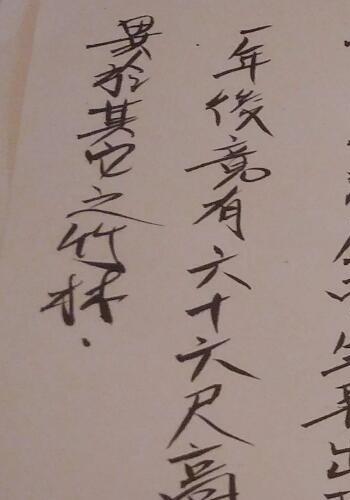 一年後竟有六十六尺高
異於其它之竹林.